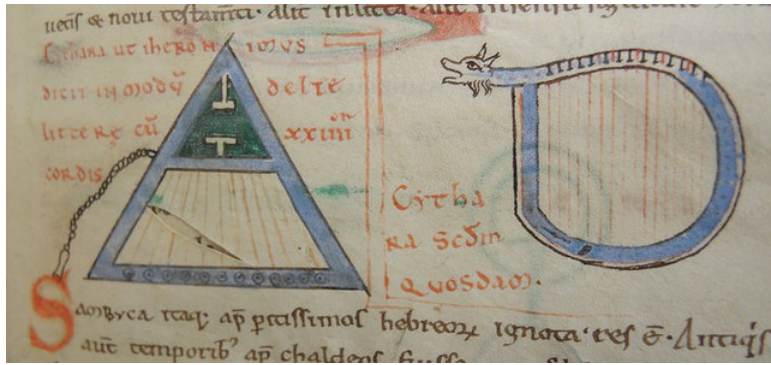 ueteris & noui testamti. aut in
Cythara ut iheron imus
dicit in modū delte
littere cū xxiiii
cordis
Cytha
ra scdm
quosdam.
Sambuca itaq; ap peritissimos hebreorx ignota res ē. Antiqis
aut temporib ap chaldeos fuisse